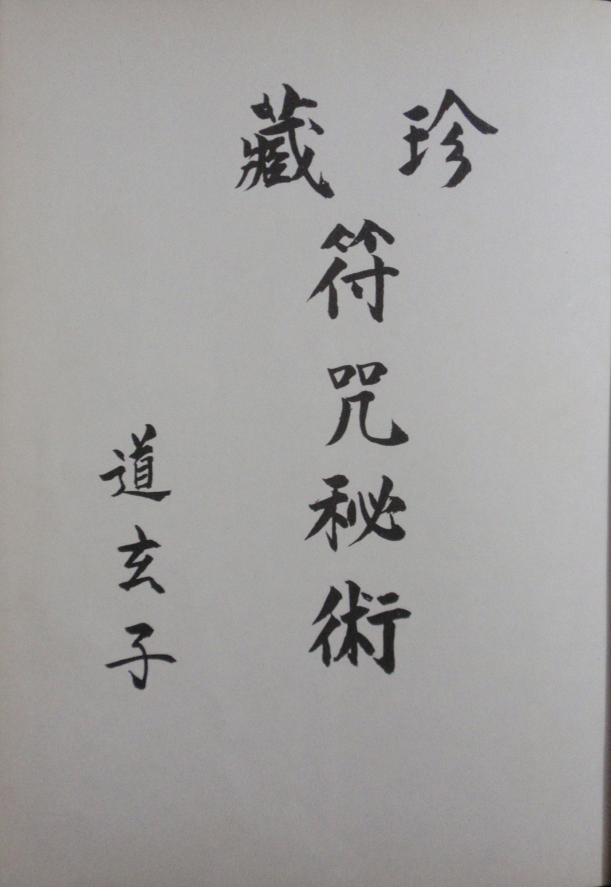 珍藏
符咒秘術
道玄子